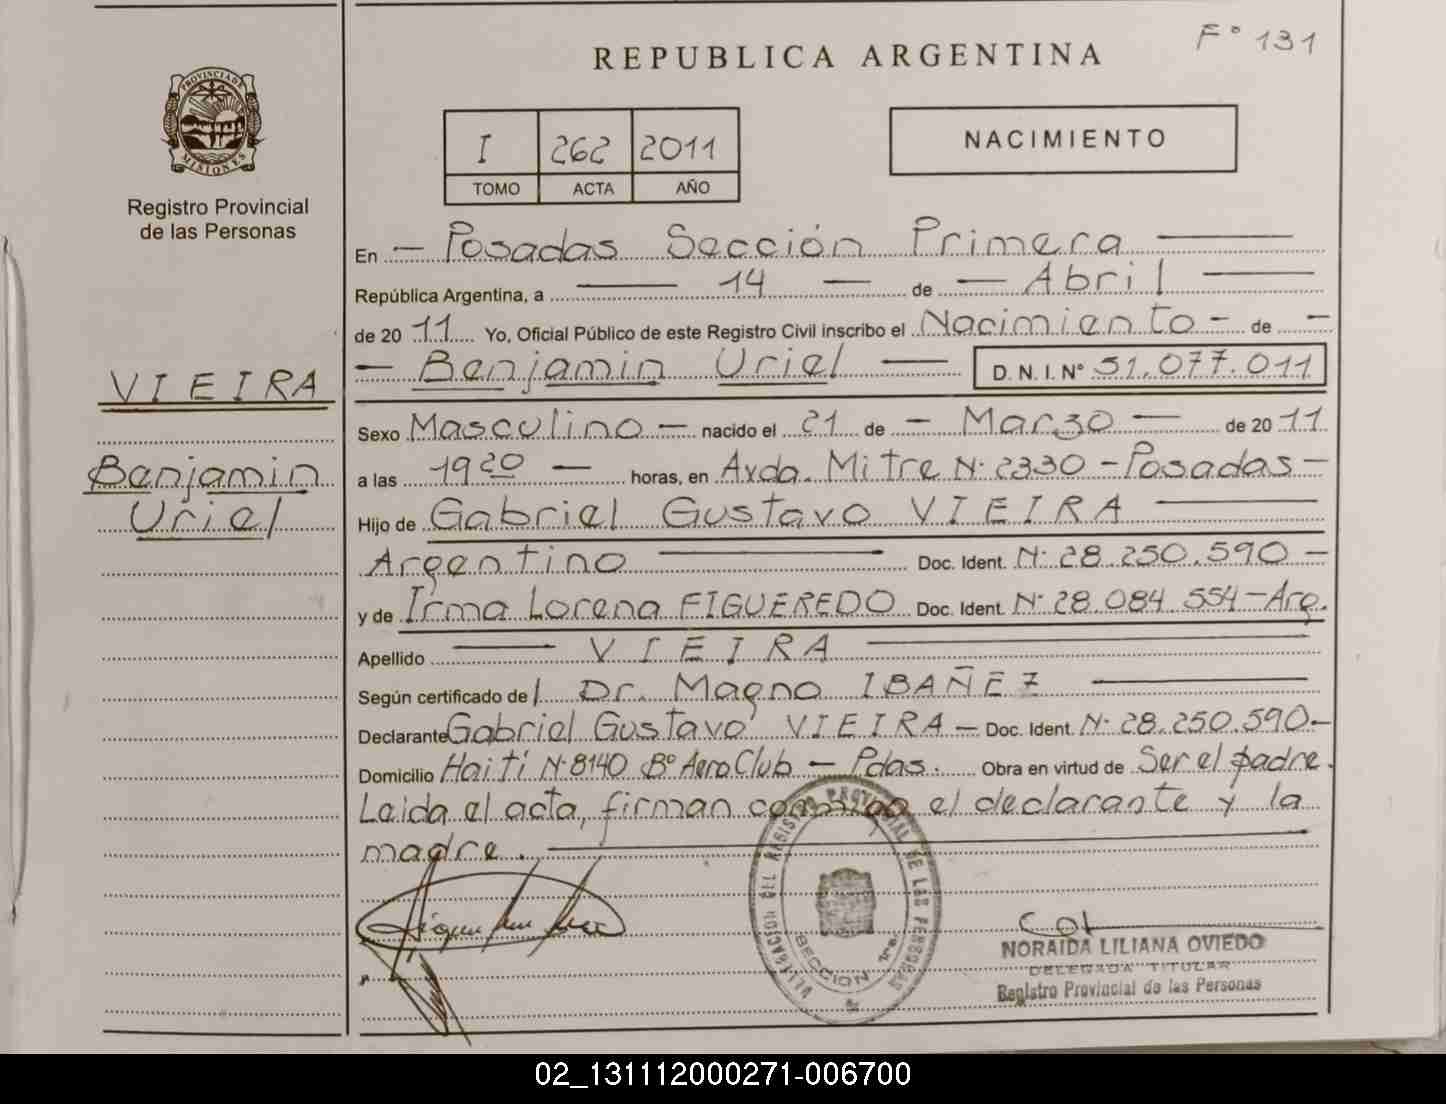 F° 131
REPUBLICA ARGENTINA
PROVINCIA DE MISIONES
Registro Provincial
de las Personas
I 262 2011
TOMO ACTA AÑO
NACIMIENTO
En — Posadas Sección Primera —
República Argentina, a — 14 — de — Abril —
de 2011 Yo, Oficial Público de este Registro Civil inscribo el Nacimiento - de -
— Benjamin Uriel — D.N.I.N° 51.077.011
VIEIRA
Benjamin
Uriel
Sexo Masculino — nacido el 21 de — Marzo — de 2011
a las 19 20 — horas, en Avda. Mitre N° 2330 - Posadas -
Hijo de Gabriel Gustavo VIEIRA —
Argentino — Doc. Ident. N° 28.250.590 —
y de Irma Lorena FIGUEREDO Doc. Ident. N° 28.084.554 - Arg.
Apellido — VIEIRA —
Según certificado de Dr. Magno IBAÑEZ —
Declarante Gabriel Gustavo VIEIRA — Doc. Ident. N° 28.250.590 -
Domicilio Haití N° 8140 B° Aero Club — Pdas. Obra en virtud de Ser el padre.
Leida el acta, firman conmigo el declarante y la
madre. —
DELEGACION DEL REGISTRO PROVINCIAL DE LAS PERSONAS
SECCION 1ra.
NORAIDA LILIANA OVIEDO
DELEGADA TITULAR
Registro Provincial de las Personas
02_131112000271-006700